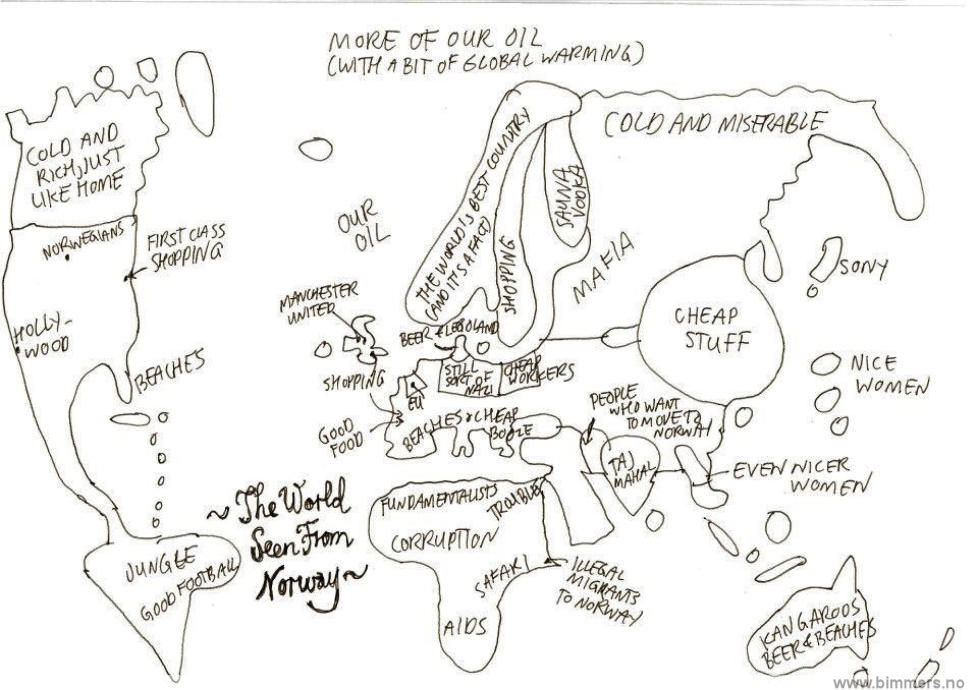 MORE OF OUR OIL
(WITH A BIT OF GLOBAL WARMING)
COLD AND
RICH, JUST
LIKE HOME
NORWEGIANS
FIRST CLASS
SHOPPING
HOLLY-
WOOD
BEACHES
JUNGLE
GOOD FOOTBALL
OUR
OIL
THE WORLD'S BEST COUNTRY
(AND IT'S A FACT)
SHOPPING
SAUNA
VODKA
COLD AND MISERABLE
MAFIA
MANCHESTER
UNITED
SHOPPING
BEER & LEGOLAND
STILL
SORT OF
NAZI
CHEAP
WORKERS
EU
GOOD
FOOD
BEACHES & CHEAP
BOOZE
PEOPLE
WHO WANT
TO MOVE TO
NORWAY
CHEAP
STUFF
SONY
NICE
WOMEN
TAJ
MAHAL
EVEN NICER
WOMEN
~ The World
Seen From
Norway ~
FUNDAMENTALISTS
TROUBLE
CORRUPTION
SAFARI
AIDS
ILLEGAL
MIGRANTS
TO NORWAY
KANGAROOS
BEER & BEACHES
www.bimmers.no